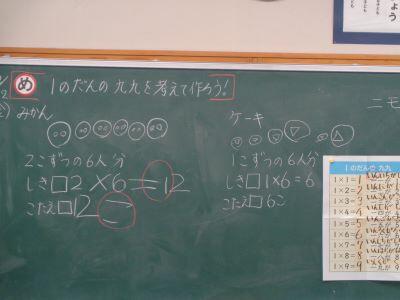 め 1のだんの 九九を考えて作ろう!
みかん
2こずつの6人分
しき□2×6=12
こたえ□12
ケーキ
1こずつの6人分
しき□1×6=6
こたえ□6こ
ニモ
1のだんの九九
1×1=1
1×2=2
1×3=3
1×4=4
1×5=5
1×6=6
1×7=7
1×8=8
1×9=9